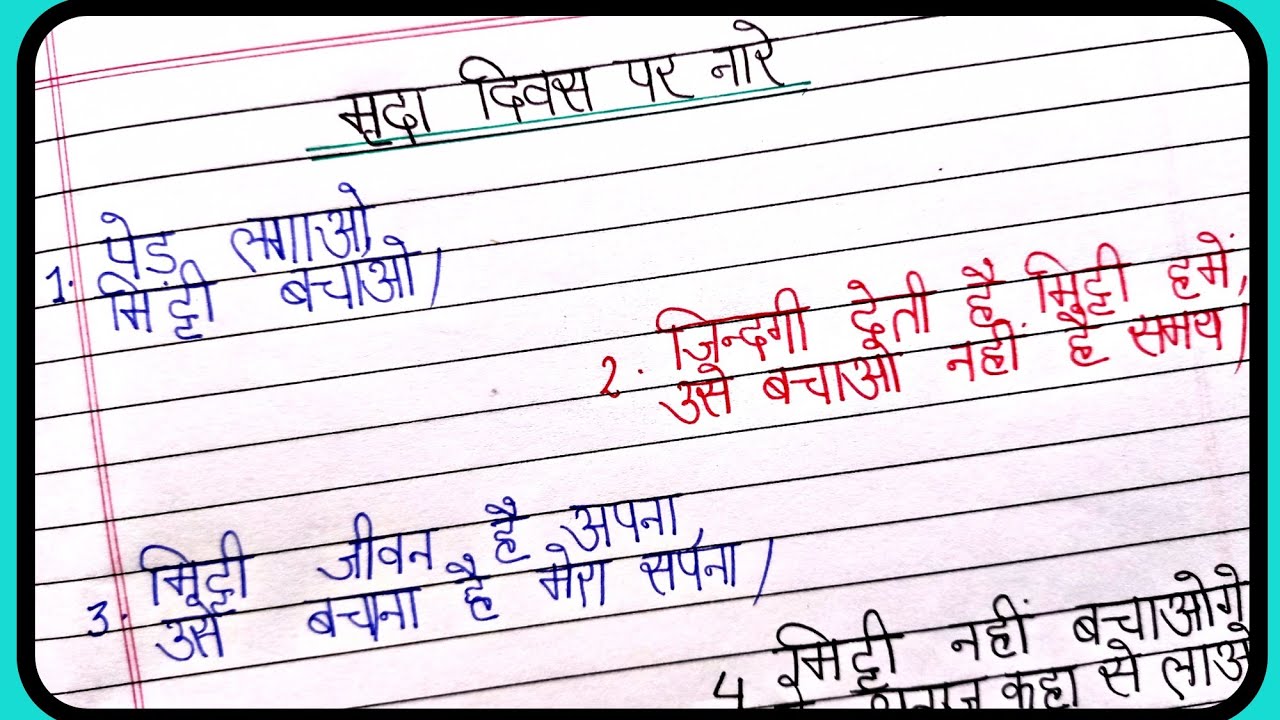 मृदा दिवस पर नारे
1. पेड़ लगाओ,
मिट्टी बचाओ।
2. ज़िन्दगी देती है मिट्टी हमें,
उसे बचाओ नहीं है समय।
3. मिट्टी जीवन है अपना,
उसे बचाना है मेरा सपना।
4 मिट्टी नहीं बचाओगे
कहा से लाओ